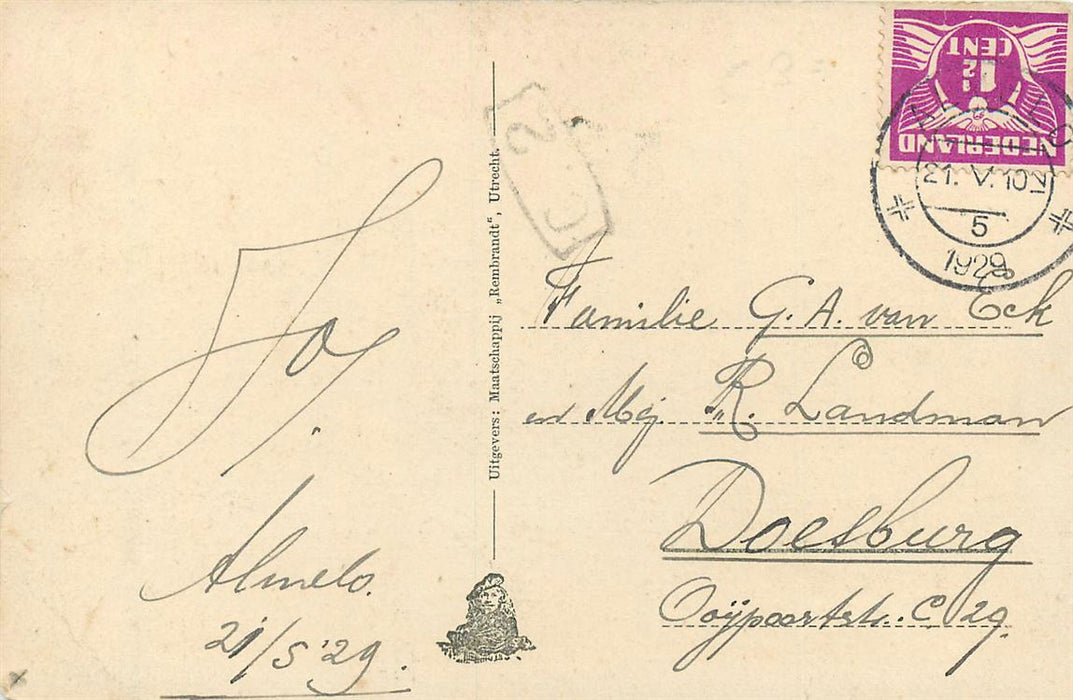 Jos.
Almelo.
21/5 '29.
Uitgevers: Maatschappij „Rembrandt", Utrecht.
NEDERLAND
1½
CENT
21. V. 10
5
1929
Familie G. A. van Eck
en Mej. R. Landman
Doesburg
Ooijpoortstr. C 29.